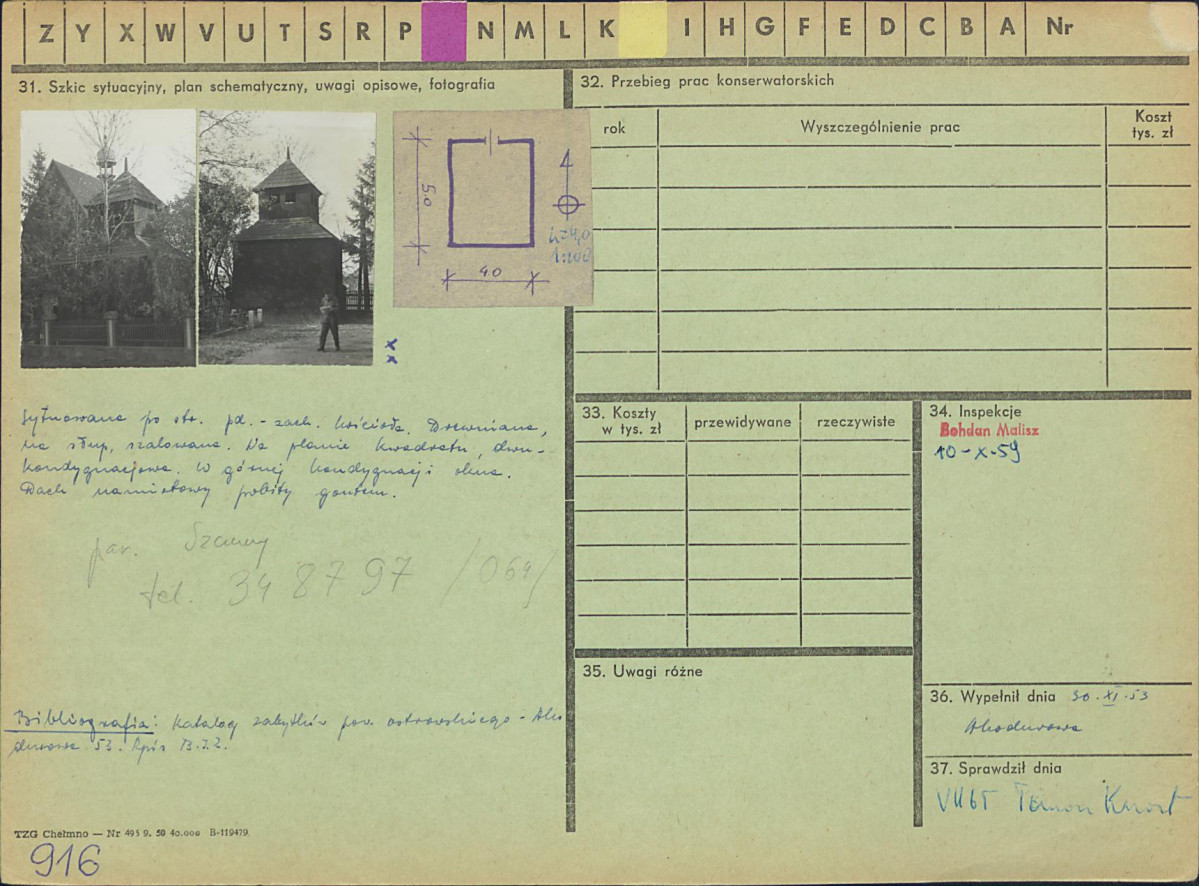 Z Y X W V U T S R P N M L K I H G F E D C B A Nr
31. Szkic sytuacyjny, plan schematyczny, uwagi opisowe, fotografia
50
40
1:100
Sytuowana po str. pd.-zach. kościoła. Drewniana,
na słup, szalowana. Na planie kwadratu, dwu-
kondygnacjowa. W górnej kondygnacji okna.
Dach namiotowy pobity gontem.
par. Szczury
tel. 34 87 97 /064/
Bibliografia: Katalog zabytków pow. ostrowskiego -
53.
TZG Chełmno — Nr 495 9. 50 40.000 B-119479
916
32. Przebieg prac konserwatorskich
rok
Wyszczególnienie prac
Koszt
tys. zł
33. Koszty
w tys. zł
przewidywane
rzeczywiste
34. Inspekcje
Bohdan Malisz
10-X-59
35. Uwagi różne
36. Wypełnił dnia 30.XI.53
37. Sprawdził dnia